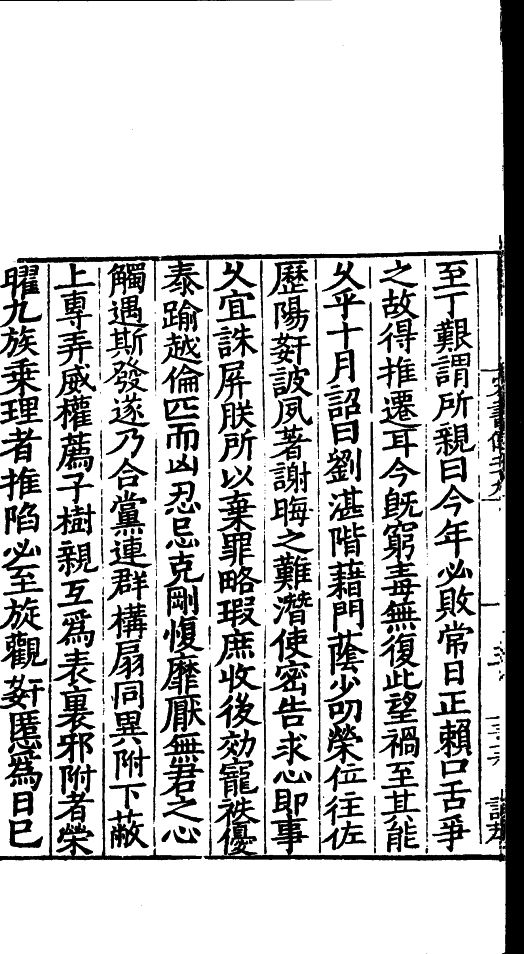 至丁艱謂所親曰今年必敗常日正賴口舌爭
之故得推遷耳今旣窮毒無復此望禍至其能
乆乎十月詔曰劉湛階藉門蔭少叨榮位往佐
歷陽姧詖夙著謝晦之難潛使密告求心即事
乆宜誅屏朕所以棄罪略瑕庶收後効寵袟優
泰踰越倫匹而凶忍忌克剛愎靡厭無君之心
觸遇斯發遂乃合黨連群構扇同異附下蔽
上專弄威權薦子樹親互爲表裏邪附者榮
曜九族乗理者推陷必至旋觀姧慝爲日巳